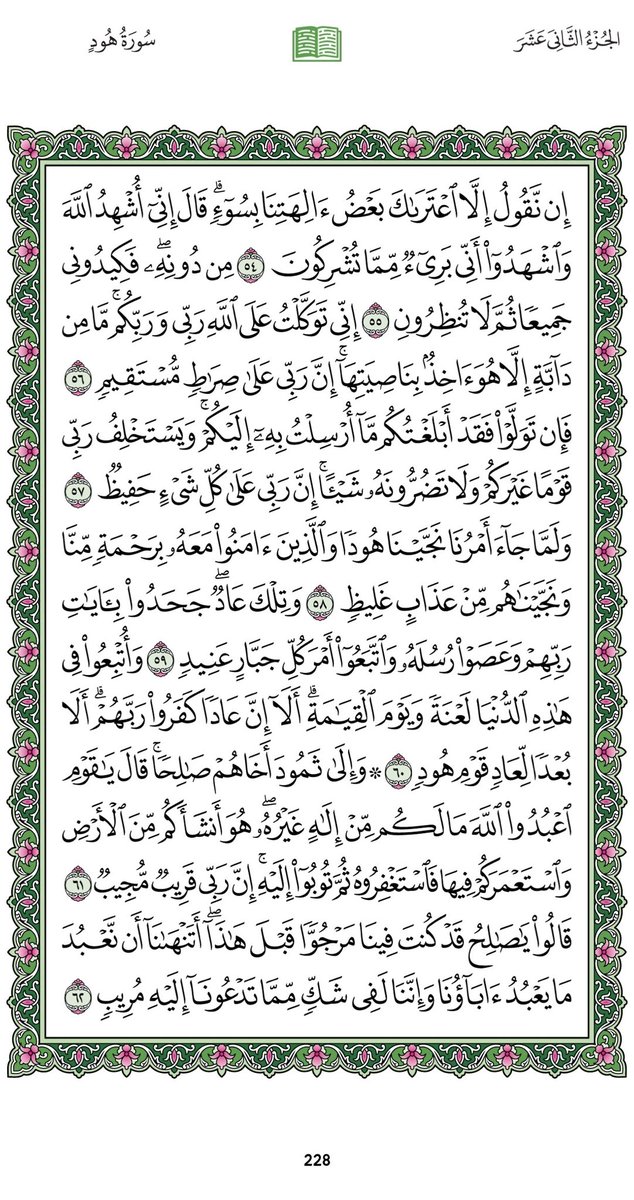 الجُزْءُ الثَّانِيَ عَشَرَ
سُورَةُ هُودٍ
إِن نَّقُولُ إِلَّا ٱعْتَرَىٰكَ بَعْضُ ءَالِهَتِنَا بِسُوٓءٖۗ قَالَ إِنِّيٓ أُشْهِدُ ٱللَّهَ
وَٱشْهَدُوٓاْ أَنِّي بَرِيٓءٞ مِّمَّا تُشْرِكُونَ ٥٤ مِن دُونِهِۦۖ فَكِيدُونِي
جَمِيعٗا ثُمَّ لَا تُنظِرُونِ ٥٥ إِنِّي تَوَكَّلْتُ عَلَى ٱللَّهِ رَبِّي وَرَبِّكُمۚ مَّا مِن
دَآبَّةٍ إِلَّا هُوَ ءَاخِذُۢ بِنَاصِيَتِهَآۚ إِنَّ رَبِّي عَلَىٰ صِرَٰطٖ مُّسْتَقِيمٖ ٥٦
فَإِن تَوَلَّوْاْ فَقَدْ أَبْلَغْتُكُم مَّآ أُرْسِلْتُ بِهِۦٓ إِلَيْكُمْۚ وَيَسْتَخْلِفُ رَبِّي
قَوْمًا غَيْرَكُمْ وَلَا تَضُرُّونَهُۥ شَيْـًٔاۚ إِنَّ رَبِّي عَلَىٰ كُلِّ شَيْءٍ حَفِيظٞ ٥٧
وَلَمَّا جَآءَ أَمْرُنَا نَجَّيْنَا هُودٗا وَٱلَّذِينَ ءَامَنُواْ مَعَهُۥ بِرَحْمَةٖ مِّنَّا
وَنَجَّيْنَٰهُم مِّنْ عَذَابٍ غَلِيظٖ ٥٨ وَتِلْكَ عَادٞۖ جَحَدُواْ بِـَٔايَٰتِ
رَبِّهِمْ وَعَصَوْاْ رُسُلَهُۥ وَٱتَّبَعُوٓاْ أَمْرَ كُلِّ جَبَّارٍ عَنِيدٖ ٥٩ وَأُتْبِعُواْ فِي
هَٰذِهِ ٱلدُّنْيَا لَعْنَةٗ وَيَوْمَ ٱلْقِيَٰمَةِۗ أَلَآ إِنَّ عَادٗا كَفَرُواْ رَبَّهُمْۗ أَلَا
بُعْدٗا لِّعَادٖ قَوْمِ هُودٖ ٦٠ ۞ وَإِلَىٰ ثَمُودَ أَخَاهُمْ صَٰلِحٗاۚ قَالَ يَٰقَوْمِ
ٱعْبُدُواْ ٱللَّهَ مَا لَكُم مِّنْ إِلَٰهٍ غَيْرُهُۥۖ هُوَ أَنشَأَكُم مِّنَ ٱلْأَرْضِ
وَٱسْتَعْمَرَكُمْ فِيهَا فَٱسْتَغْفِرُوهُ ثُمَّ تُوبُوٓاْ إِلَيْهِۚ إِنَّ رَبِّي قَرِيبٞ مُّجِيبٞ ٦١
قَالُواْ يَٰصَٰلِحُ قَدْ كُنتَ فِينَا مَرْجُوّٗا قَبْلَ هَٰذَآۖ أَتَنْهَىٰنَآ أَن نَّعْبُدَ
مَا يَعْبُدُ ءَابَآؤُنَا وَإِنَّنَا لَفِي شَكّٖ مِّمَّا تَدْعُونَآ إِلَيْهِ مُرِيبٖ ٦٢
228